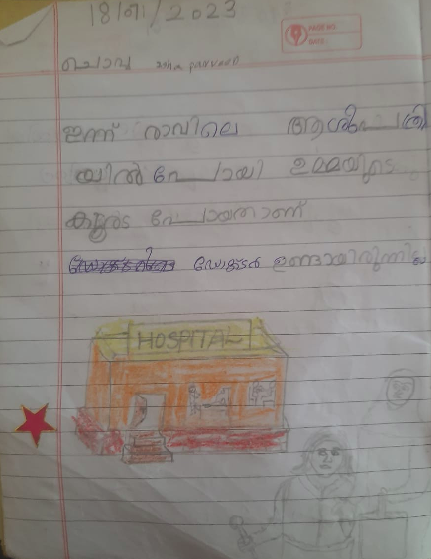 18/01/2023
ചൊവ്വ
ഇന്ന് രാവിലെ ആശുപത്രി
യിൽ പോയി ഉമ്മയുടെ
കൂടെ പോയതാണ്
ഡോക്ടർ ഉണ്ടായിരുന്നില്ല
HOSPITAL